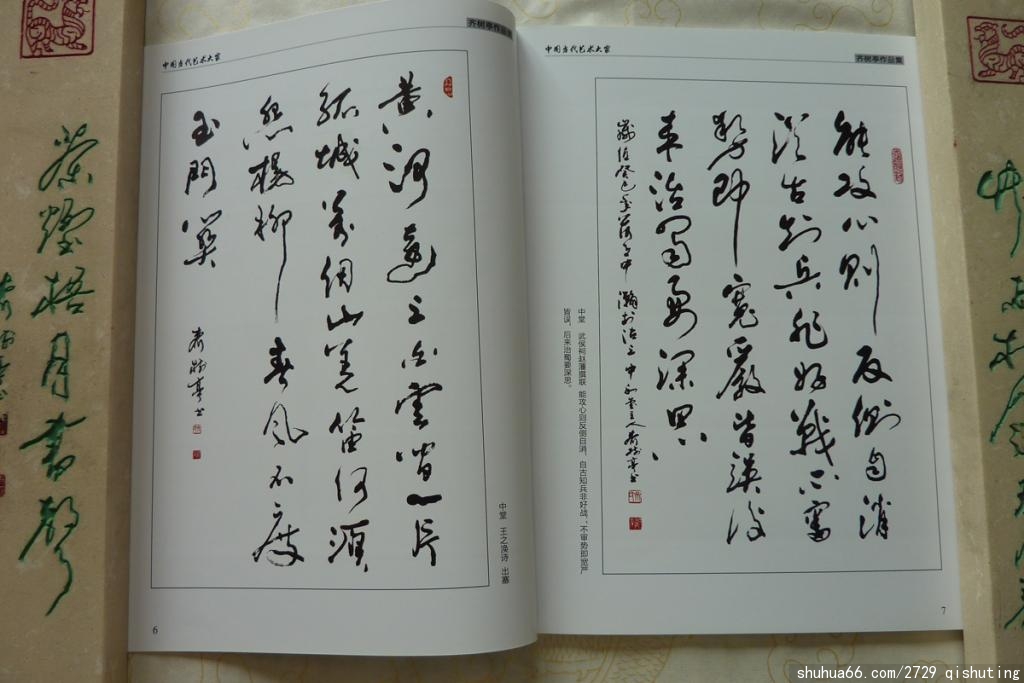 中国当代艺术大家
齐树亭作品集
黄河遠上白雲間一片
孤城萬仞山羌笛何須
怨楊柳春風不度
玉門關
齐树亭书
中堂 王之涣诗 出塞
6
中国当代艺术大家
齐树亭作品集
能攻心則反側自消
從古知兵非好戰不審
勢即寬嚴皆誤後
來治蜀要深思
歲值癸巳
齐树亭书
中堂 武侯祠赵藩撰联 能攻心则反侧自消，自古知兵非好战；不审势即宽严
皆误，后来治蜀要深思。
7
茶煙梧月書聲
shuhua66.com/2729 qishuting